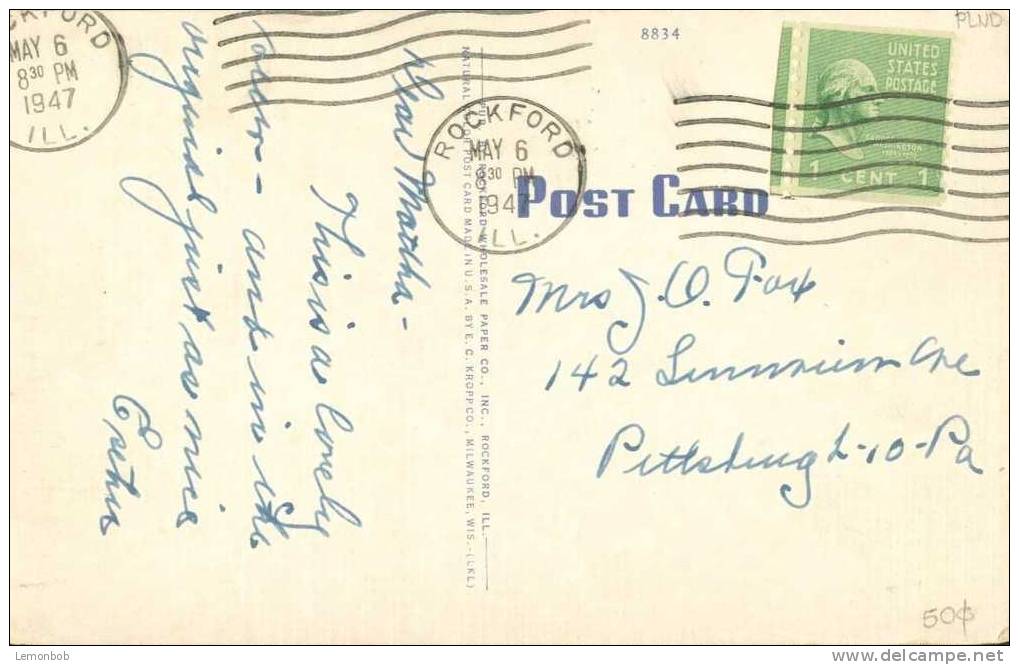 ROCKFORD
MAY 6
8 30 PM
1947
ILL.
8834
PLND
UNITED
STATES
POSTAGE
WASHINGTON
1 CENT 1
ROCKFORD
MAY 6
8 30 PM
1947
ILL.
POST CARD
Dear Martha-
This is a lovely
and in the
just as nice
Mrs J. O. Fox
142 Ave
Pittsburgh-10-Pa.
ROCKFORD WHOLESALE PAPER CO., INC., ROCKFORD, ILL.
NATURAL POST CARD MADE IN U.S.A. BY E. C. KROPP CO., MILWAUKEE, WIS.-(LKL)
50¢
Lemonbob
www.delcampe.net